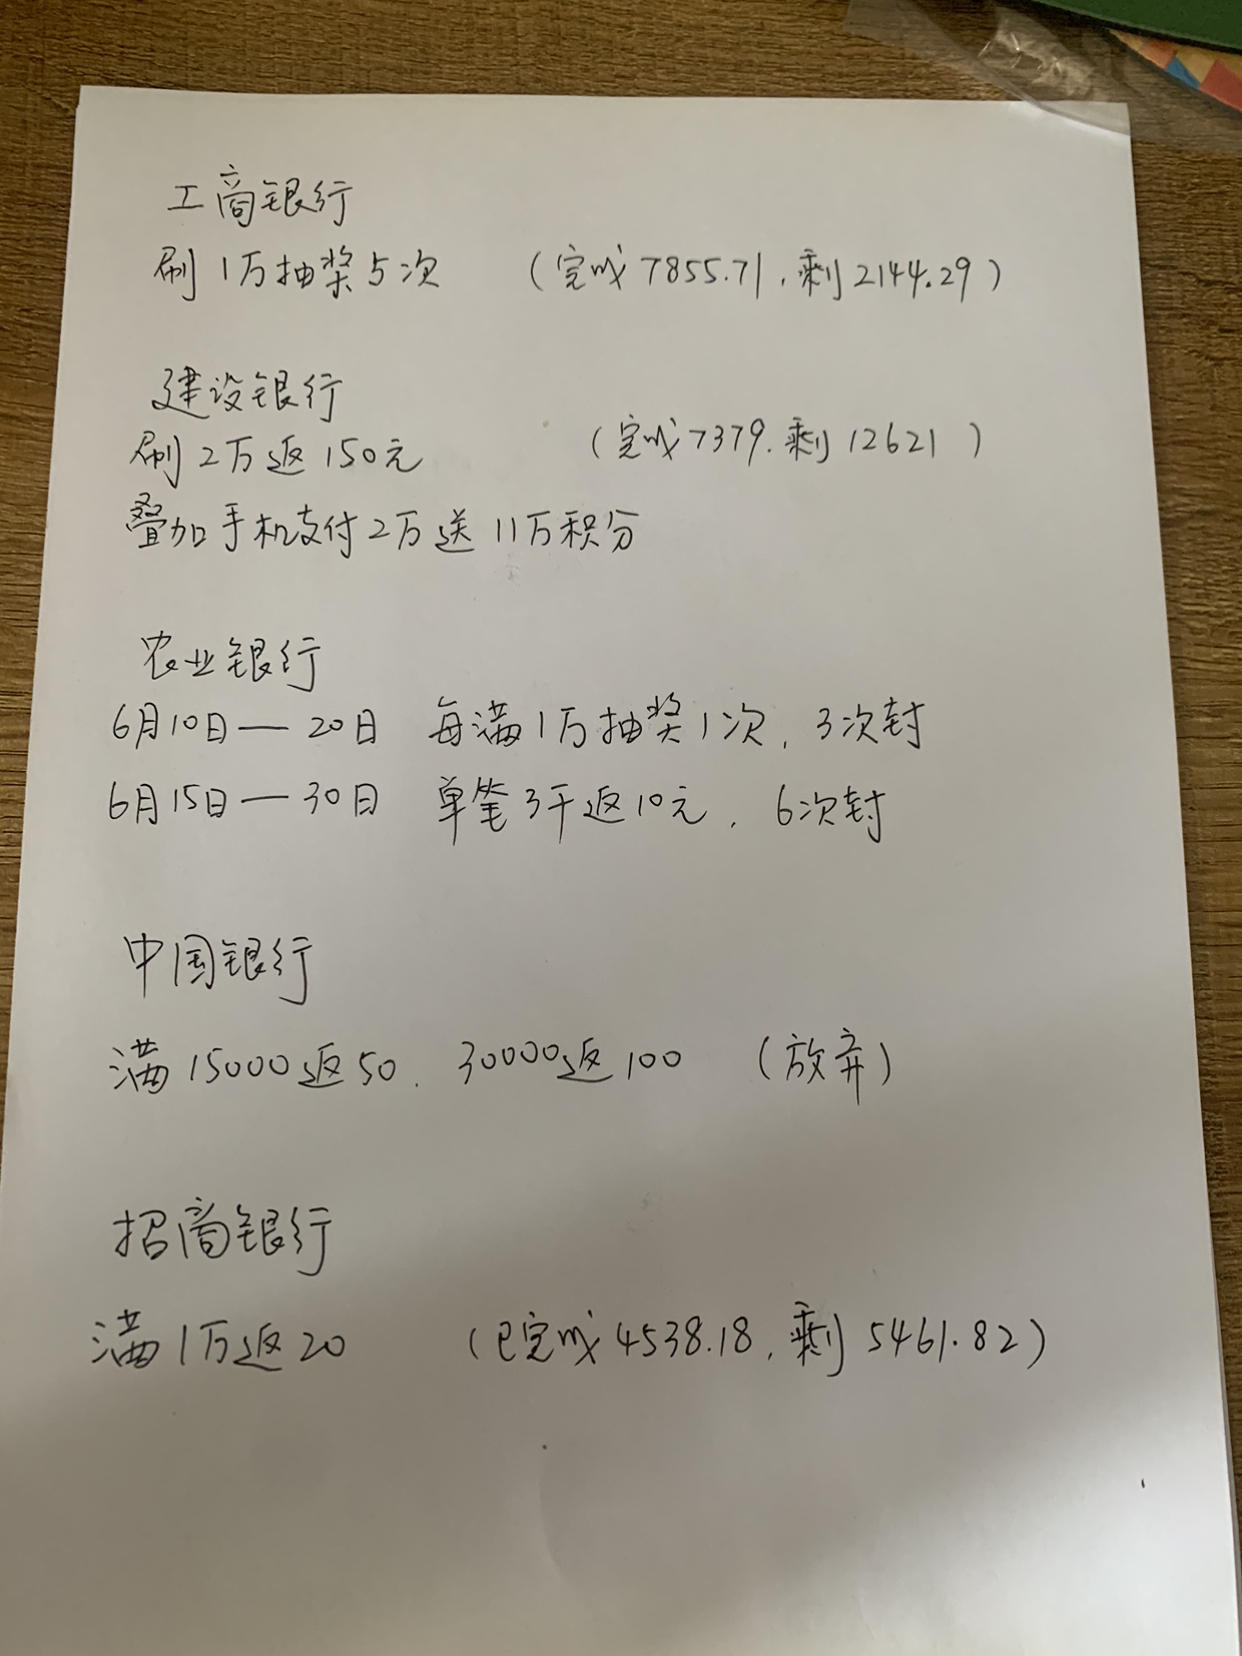 工商银行
刷1万抽奖5次 (完成7855.71,剩2144.29)
建设银行
刷2万返150元 (完成7379.剩12621)
叠加手机支付2万送11万积分
农业银行
6月10日—20日 每满1万抽奖1次,3次封
6月15日—30日 单笔3千返10元,6次封
中国银行
满15000返50.30000返100 (放弃)
招商银行
满1万返20 (已完成4538.18,剩5461.82)